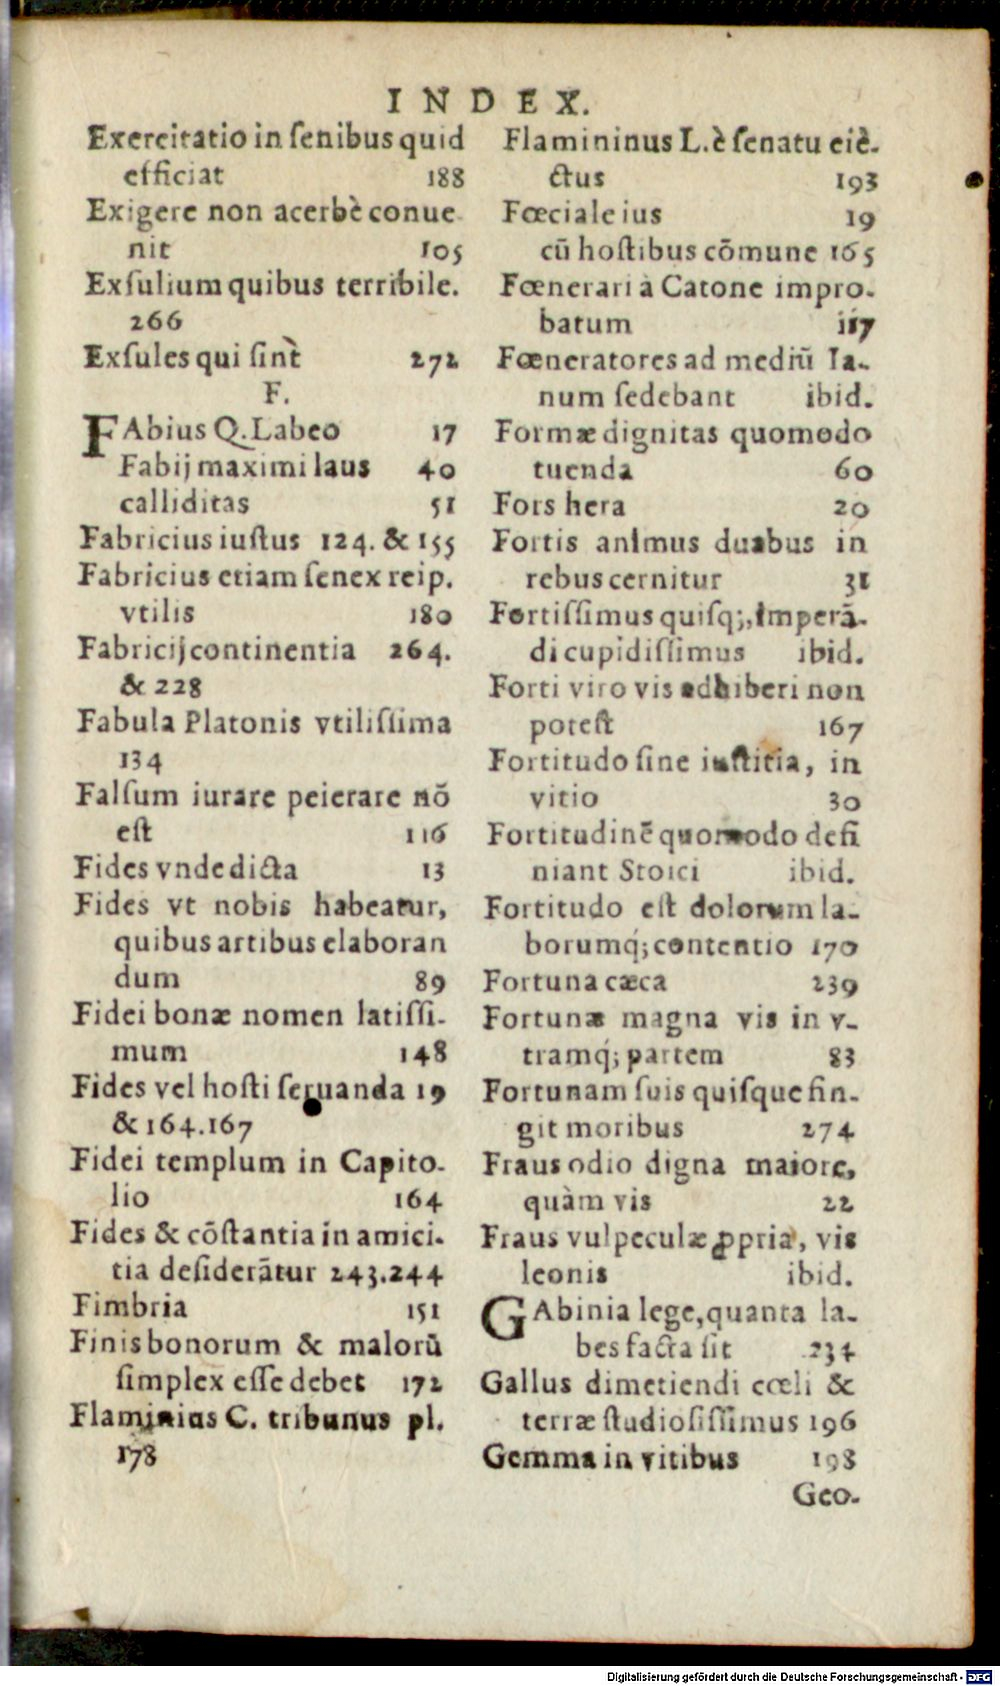 INDEX.
Exercitatio in ſenibus quid
efficiat 188
Exigere non acerbè conue
nit 105
Exſulium quibus terribile.
266
Exſules qui ſint 272
F.
FAbius Q. Labeo 17
Fabij maximi laus 40
calliditas 51
Fabricius iuſtus 124. & 155
Fabricius etiam ſenex reip.
vtilis 180
Fabricij continentia 264.
& 228
Fabula Platonis vtiliſſima
134
Falſum iurare peierare nō
eſt 116
Fides vnde dicta 13
Fides vt nobis habeatur,
quibus artibus elaboran
dum 89
Fidei bonæ nomen latiſſi-
mum 148
Fides vel hoſti ſeruanda 19
& 164.167
Fidei templum in Capito-
lio 164
Fides & cōſtantia in amici-
tia deſiderātur 243.244
Fimbria 151
Finis bonorum & malorū
ſimplex eſſe debet 172
Flaminius C. tribunus pl.
178
Flamininus L. è ſenatu eiè-
ctus 193
Fœciale ius 19
cū hoſtibus cōmune 165
Fœnerari à Catone impro-
batum 117
Fœneratores ad mediū Ia-
num ſedebant ibid.
Formæ dignitas quomodo
tuenda 60
Fors hera 20
Fortis animus duabus in
rebus cernitur 31
Fortiſſimus quiſq;, imperā-
di cupidiſſimus ibid.
Forti viro vis adhiberi non
poteſt 167
Fortitudo ſine iuſtitia, in
vitio 30
Fortitudinē quomodo defi
niant Stoici ibid.
Fortitudo eſt dolorum la-
borumq́; contentio 170
Fortuna cæca 239
Fortunæ magna vis in v-
tramq́; partem 83
Fortunam ſuis quiſque fin-
git moribus 274
Fraus odio digna maiore,
quàm vis 22
Fraus vulpeculæ ꝓpria, vis
leonis ibid.
GAbinia lege, quanta la-
bes facta ſit 234
Gallus dimetiendi cœli &
terræ ſtudioſiſſimus 196
Gemma in vitibus 198
Geo-
Digitalisierung gefördert durch die Deutsche Forschungsgemeinschaft - DFG